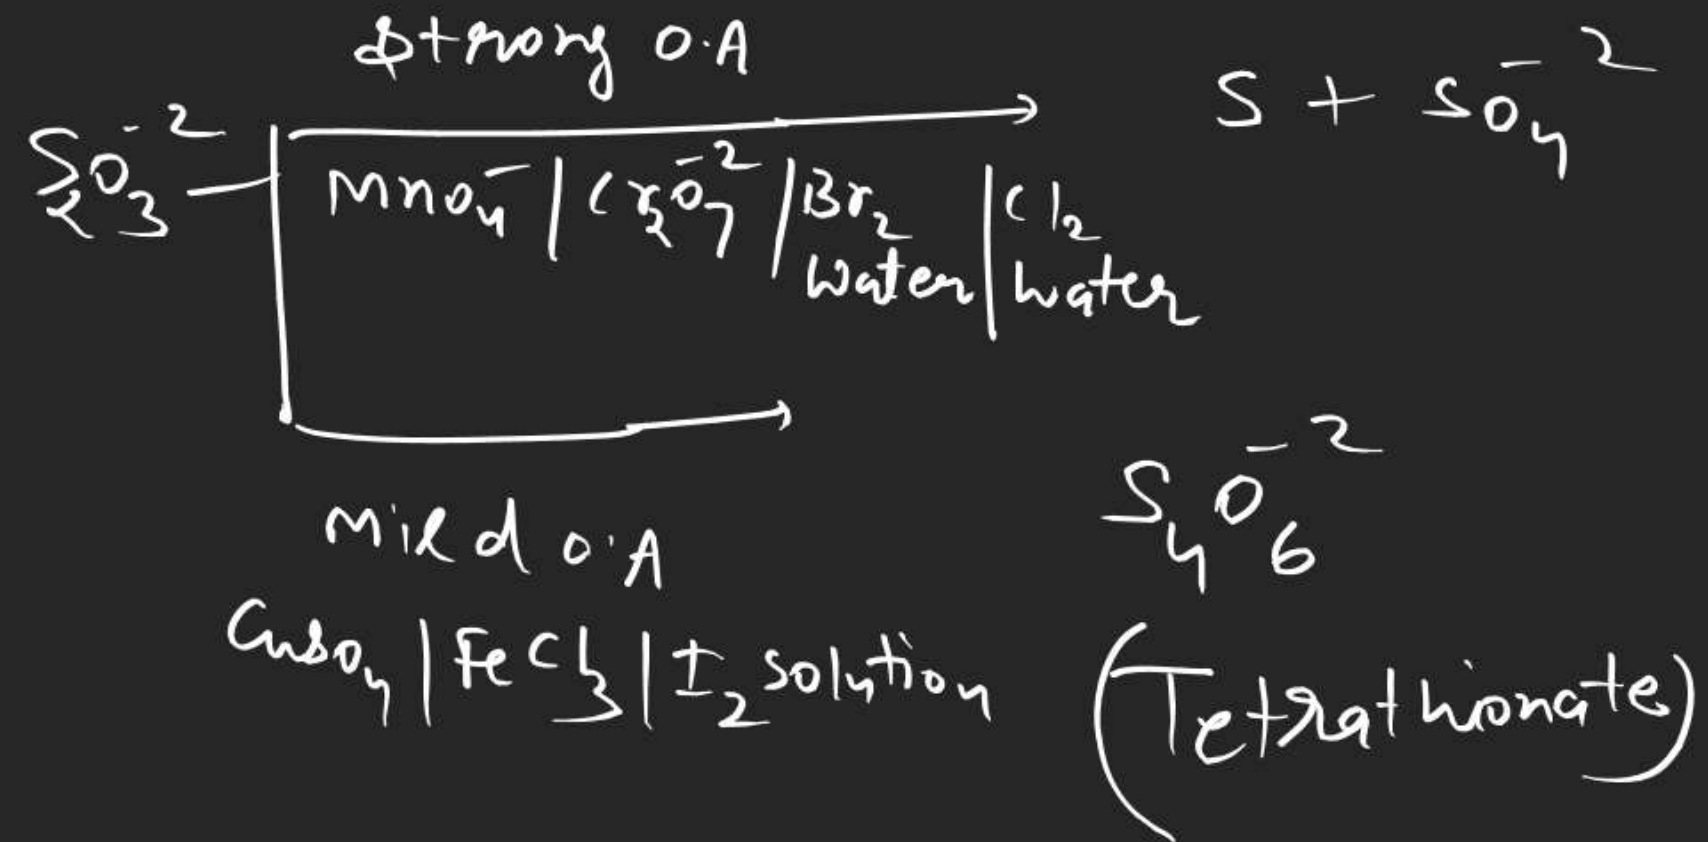 Strong O.A
S₂O₃⁻² MnO₄⁻ | Cr₂O₇⁻² | Br₂ Water | Cl₂ Water S + SO₄⁻²
Mild O.A S₄O₆⁻²
CuSO₄ | FeCl₃ | I₂ solution (Tetrathionate)